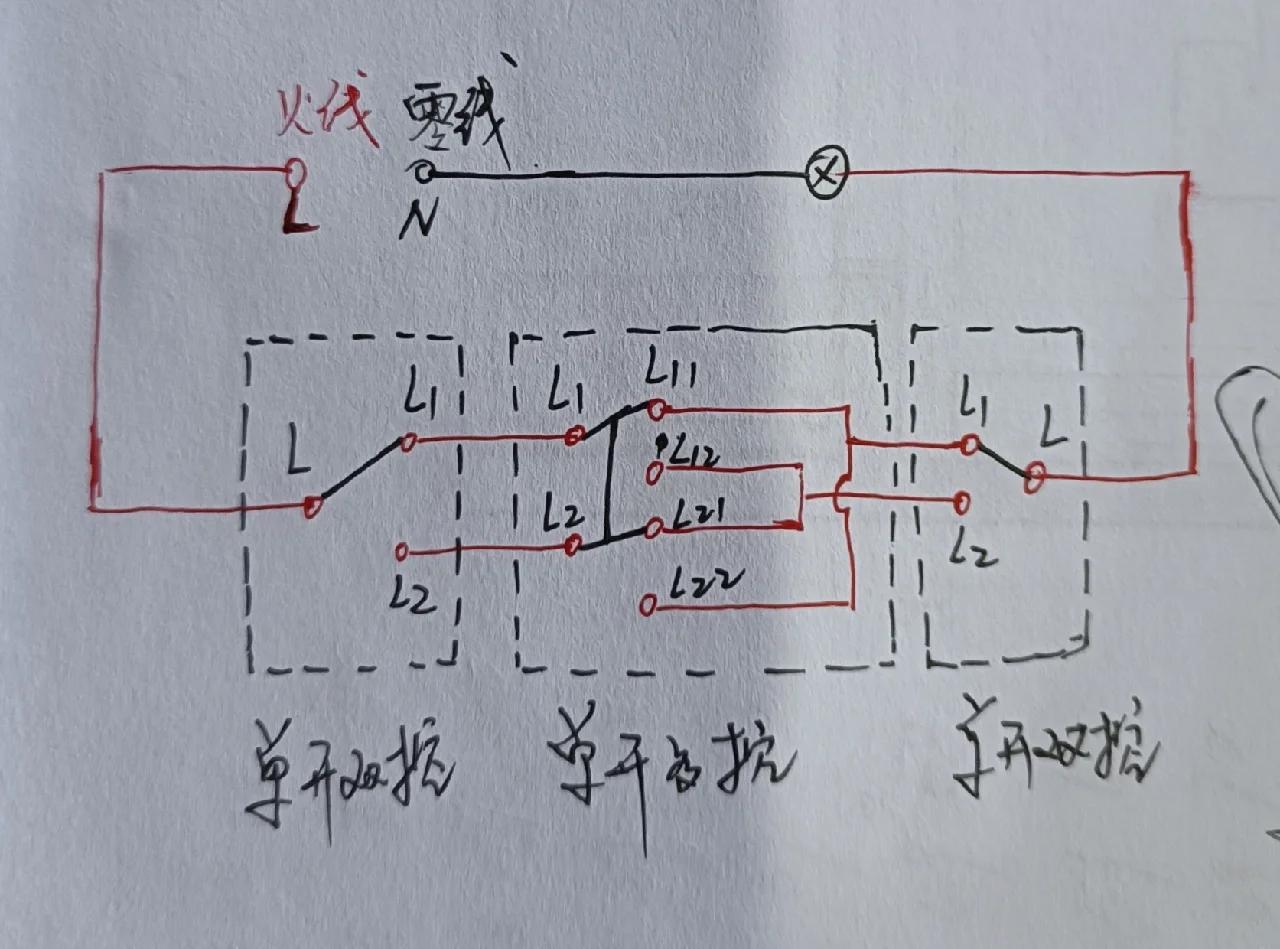 火线 零线
L N
L1 L1 L11 L1
L L12 L
L2 L21
L2 L22 L2
单开双控 单开多控 单开双控